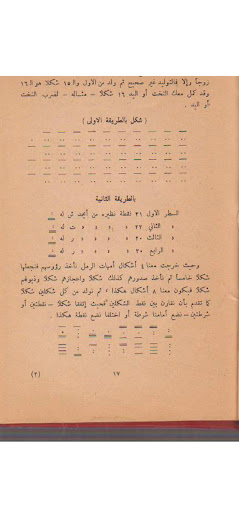 زوجاً وإلا فالتوليد غير صحيح ثم ولد من الاول وال١٥ شكلا هو ال١٦
وقد كمل معك التخت أو اليد ١٦ شكلا – مثاله – لضرب التخت
أو اليد .
( شكل بالطريقة الاولى )
بالطريقة الثانية
السطر الاول ٣١ نقطة نظيره من أبجد ش له
» الثاني ٢٢ » » » ت له
» الثالث ٢٠ » » » ر له
» الرابع ٢٠ » » » ر له
وحيث خرجت معنا ٤ أشكال أمهات الرمل نأخذ رؤوسهم فنجعلها
شكلا خامساً ثم نأخذ صدورهم كذلك شكلا واعجازهم شكلا وذيولهم
شكلا فيكون معنا ٨ أشكال هكذا ، ثم نولد من كل شكلين شكلا
كما تقدم بأن نقارن بين نقط الشكلين فحيث إتفقا شكلا – نقطتين أو
شرطتين – نضع أمامنا شرطة أو اختلفا نضع نقطة هكذا :
١٧
(٢)